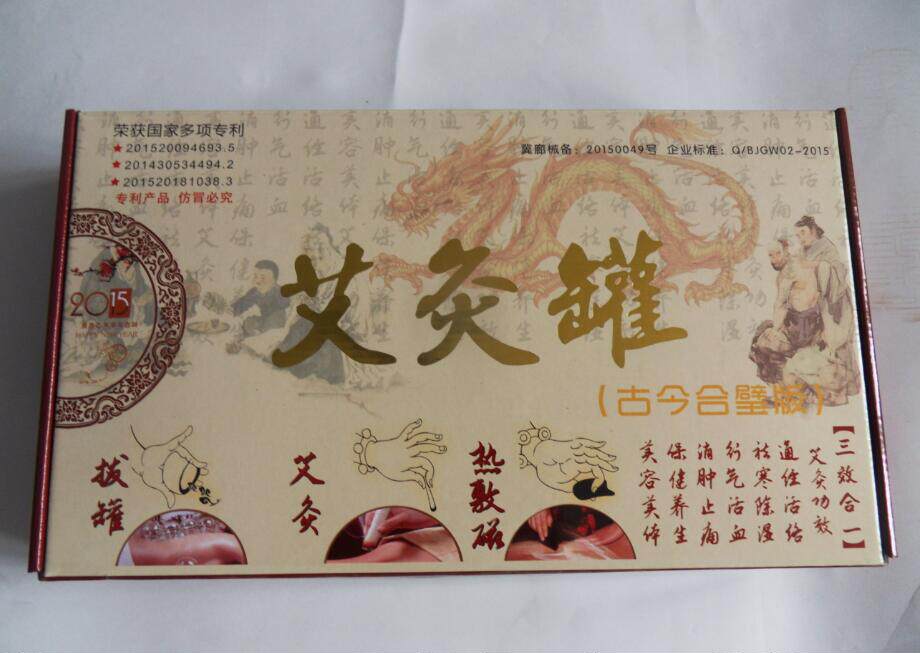 荣获国家多项专利
★201520094693.5
★201430534494.2
★201520181038.3
专利产品 仿冒必究
冀廊械备：20150049号 企业标准：Q/BJGW02-2015
2015
HAPPY NEW YEAR
艾灸罐
（古今合璧版）
拔罐
艾灸
热敷砭
【三效合一】
艾灸功效
通经活络
祛寒除湿
行气活血
消肿止痛
保健养生
美容美体